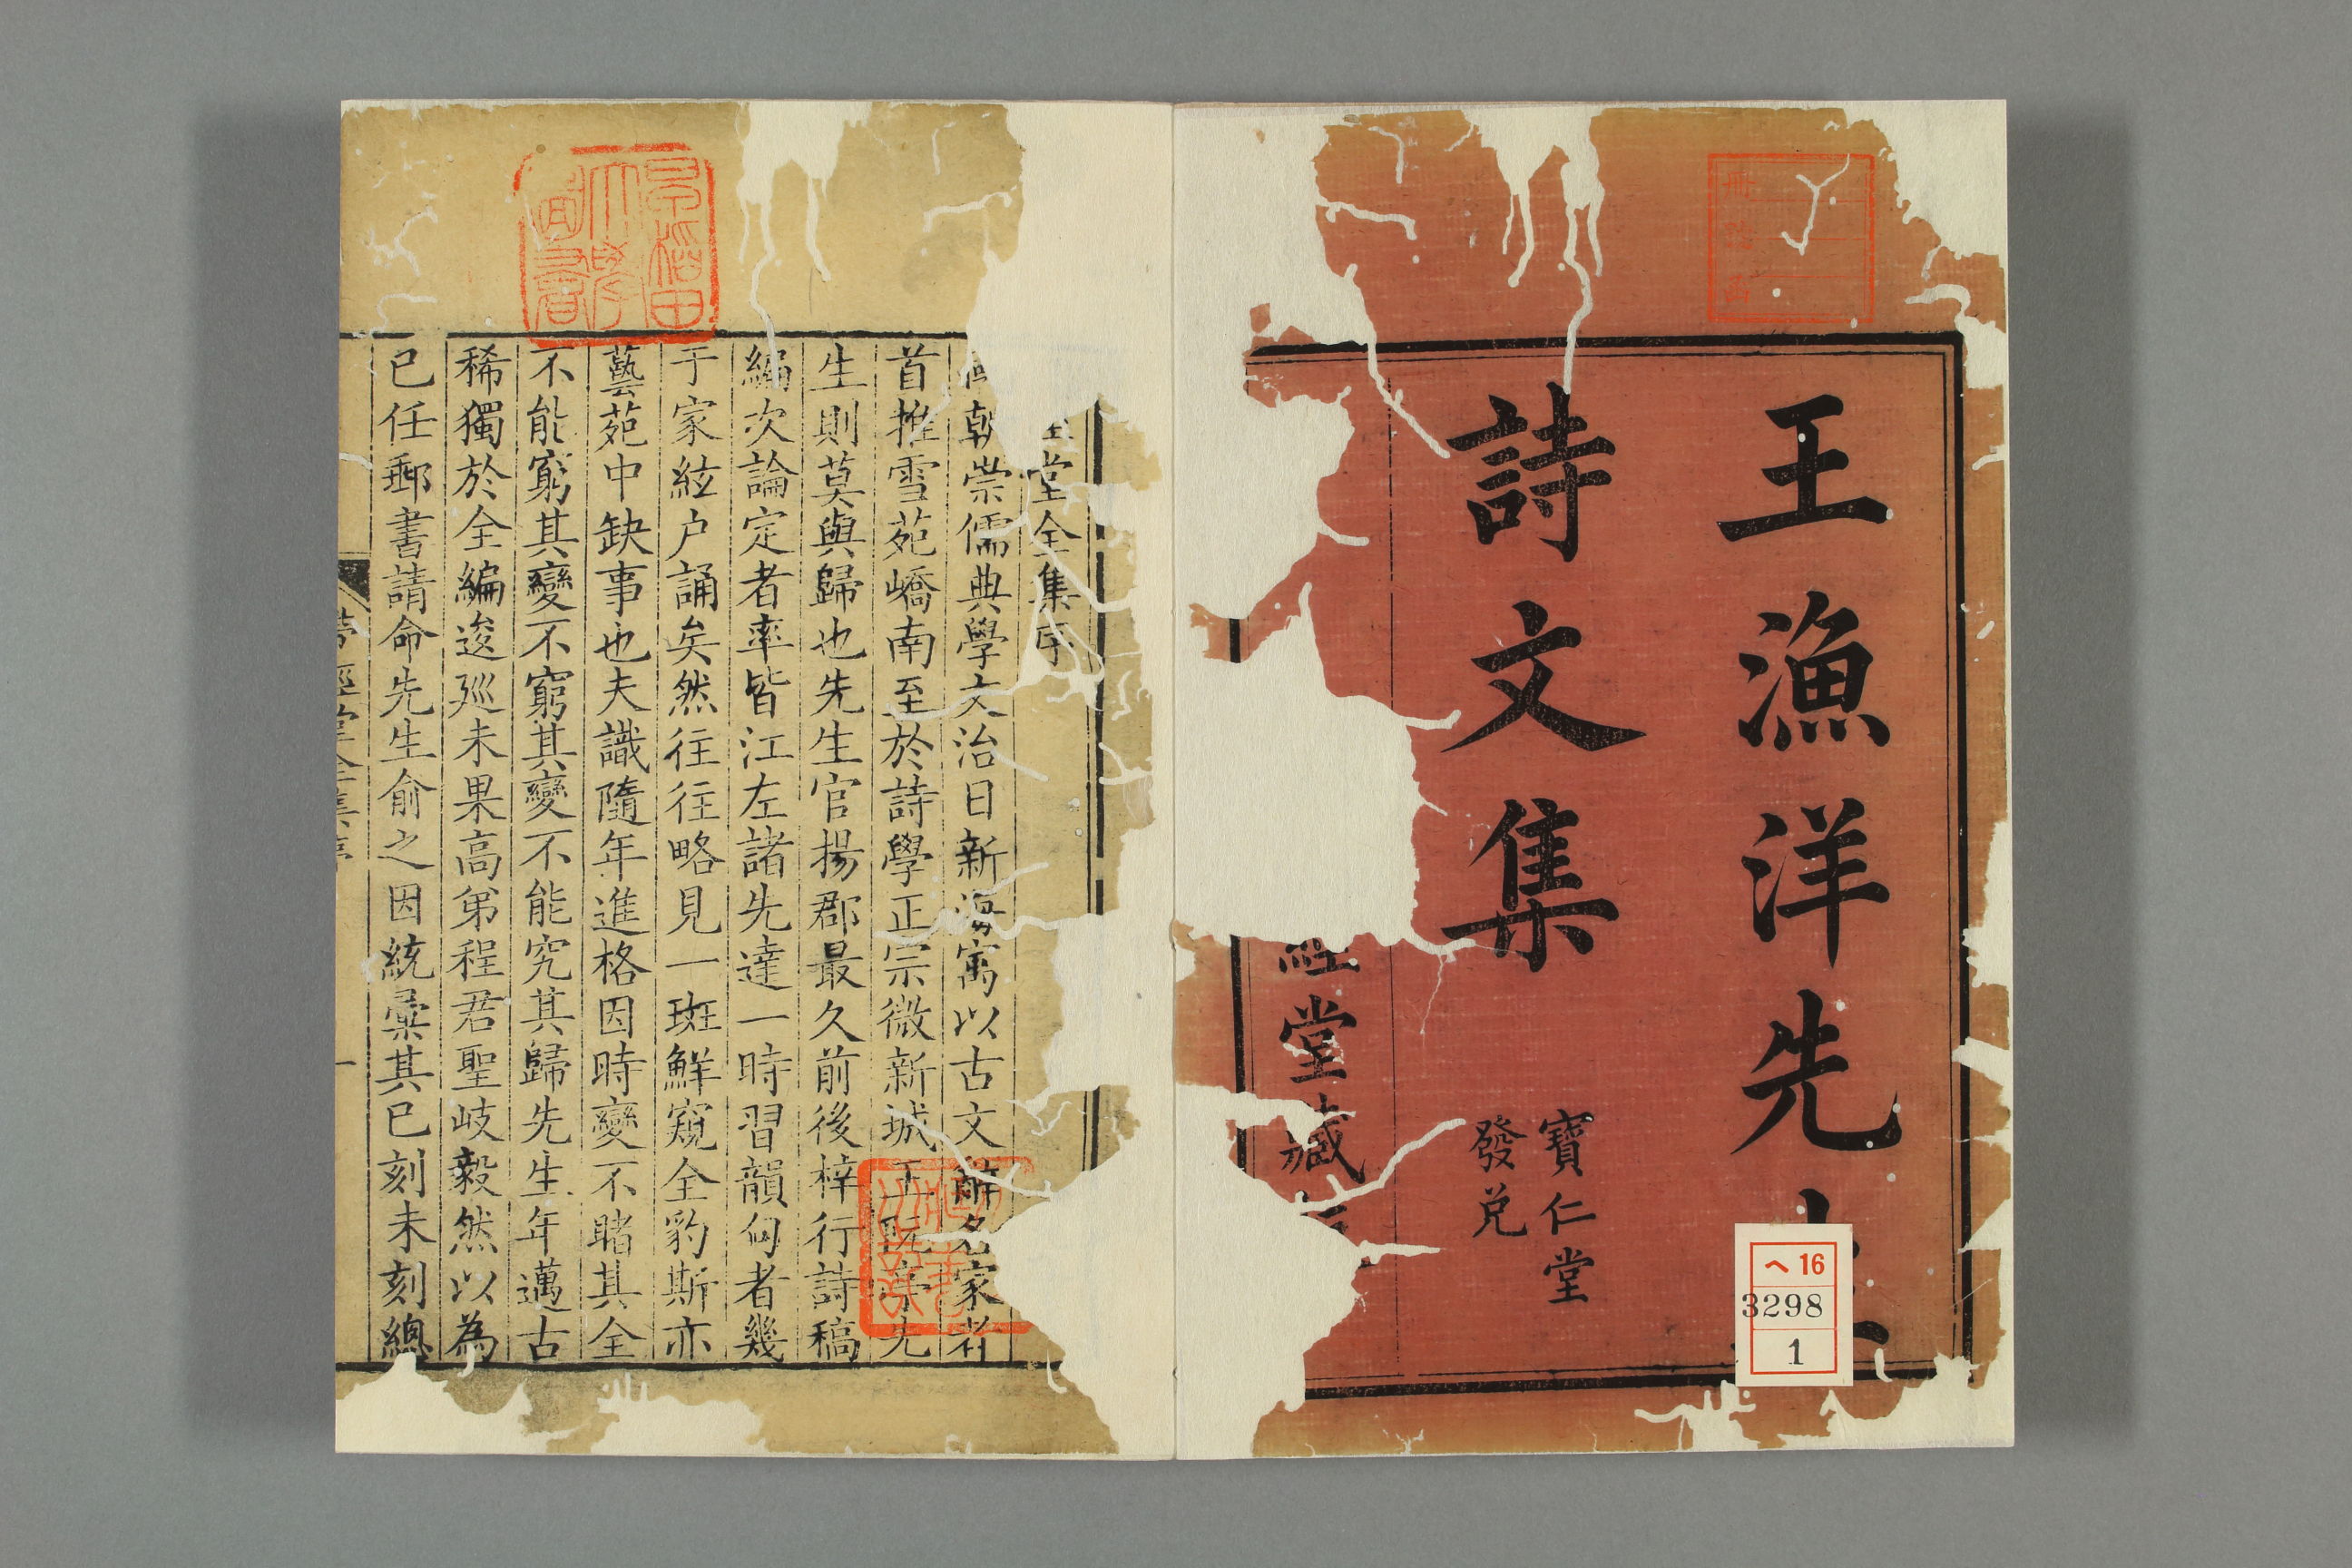 王漁洋先生
詩文集
寶仁堂
發兌
經堂藏
へ16
3298
1
冊
函
早稲田
大學
圖書
經堂全集序
國朝崇儒典學文治日新海寓以古文辭名家者
首推雪苑嶠南至於詩學正宗微新城王阮亭先
生則莫與歸也先生官揚郡最久前後梓行詩稿
編次論定者率皆江左諸先達一時習韻句者幾
于家絃户誦矣然往往略見一斑鮮窺全豹斯亦
藝苑中缺事也夫識隨年進格因時變不睹其全
不能窮其變不窮其變不能究其歸先生年邁古
稀獨於全編逡巡未果高弟程君聖岐毅然以為
已任郵書請命先生俞之因統彚其已刻未刻總
帶經堂全集序
一